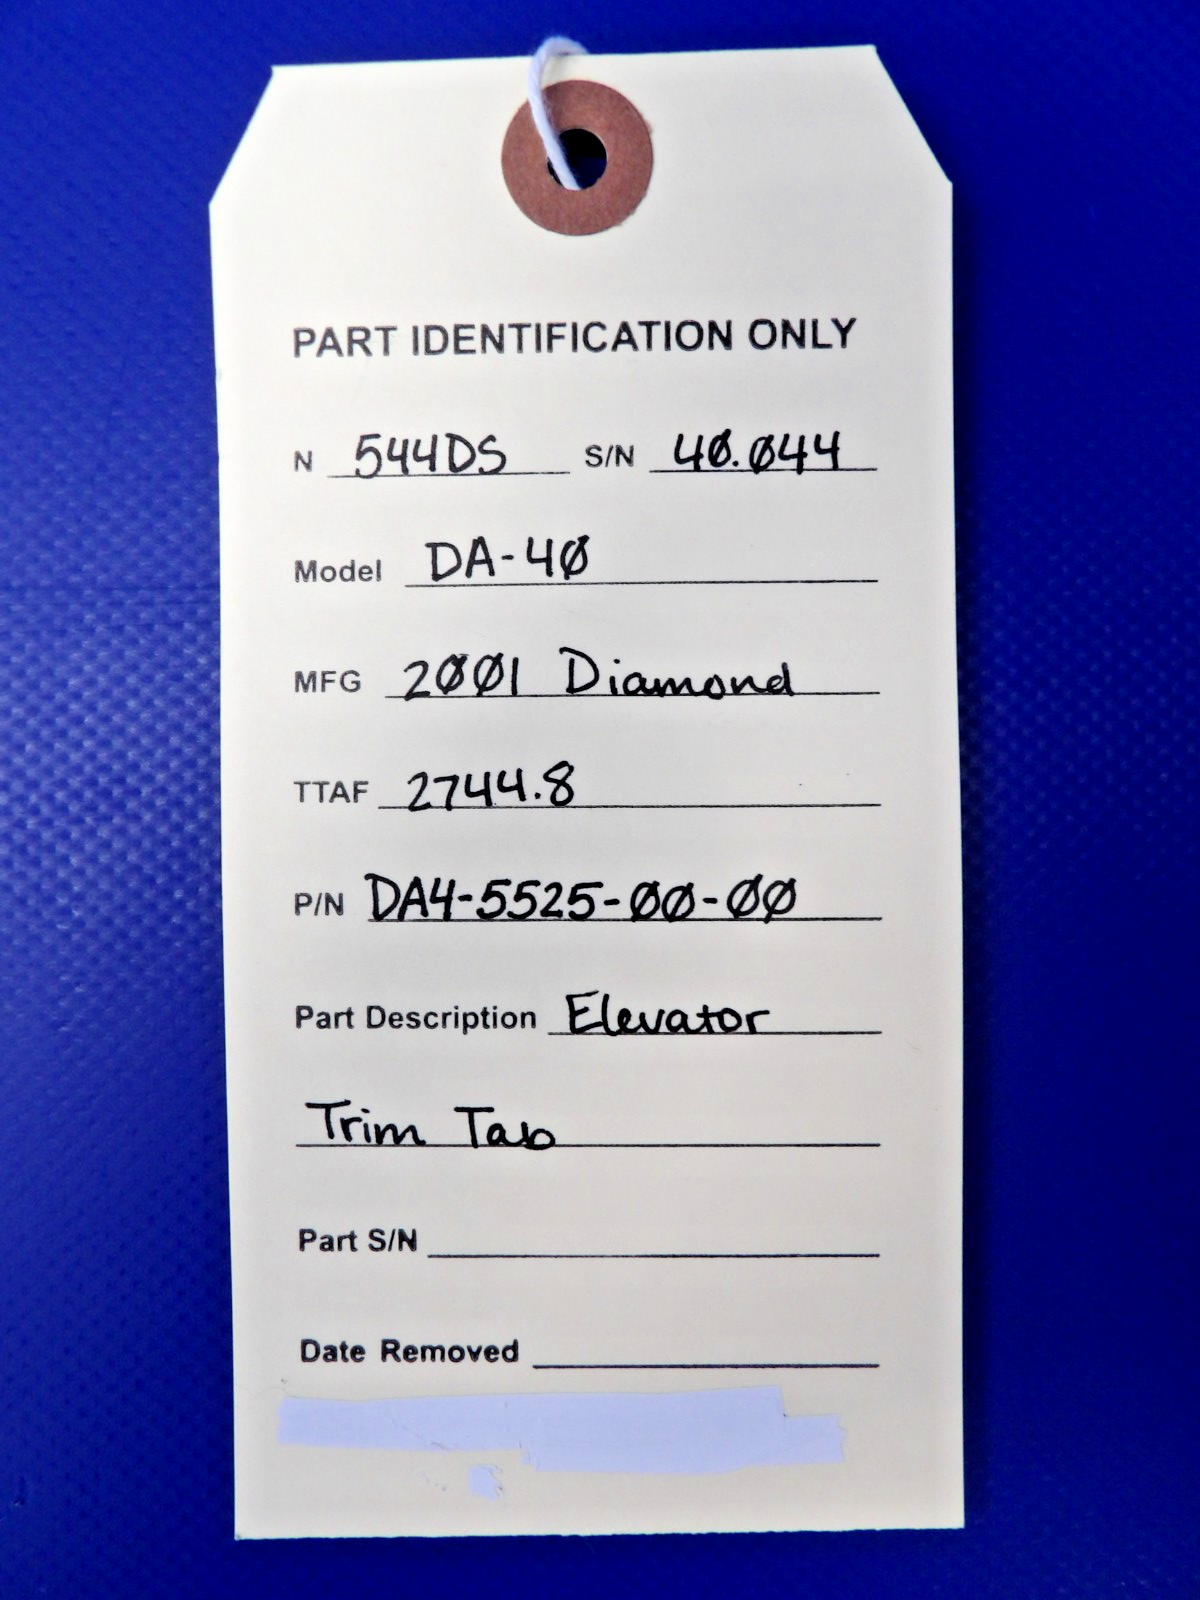 PART IDENTIFICATION ONLY
N 544DS S/N 40.044
Model DA-40
MFG 2001 Diamond
TTAF 2744.8
P/N DA4-5525-00-00
Part Description Elevator
Trim Tab
Part S/N
Date Removed